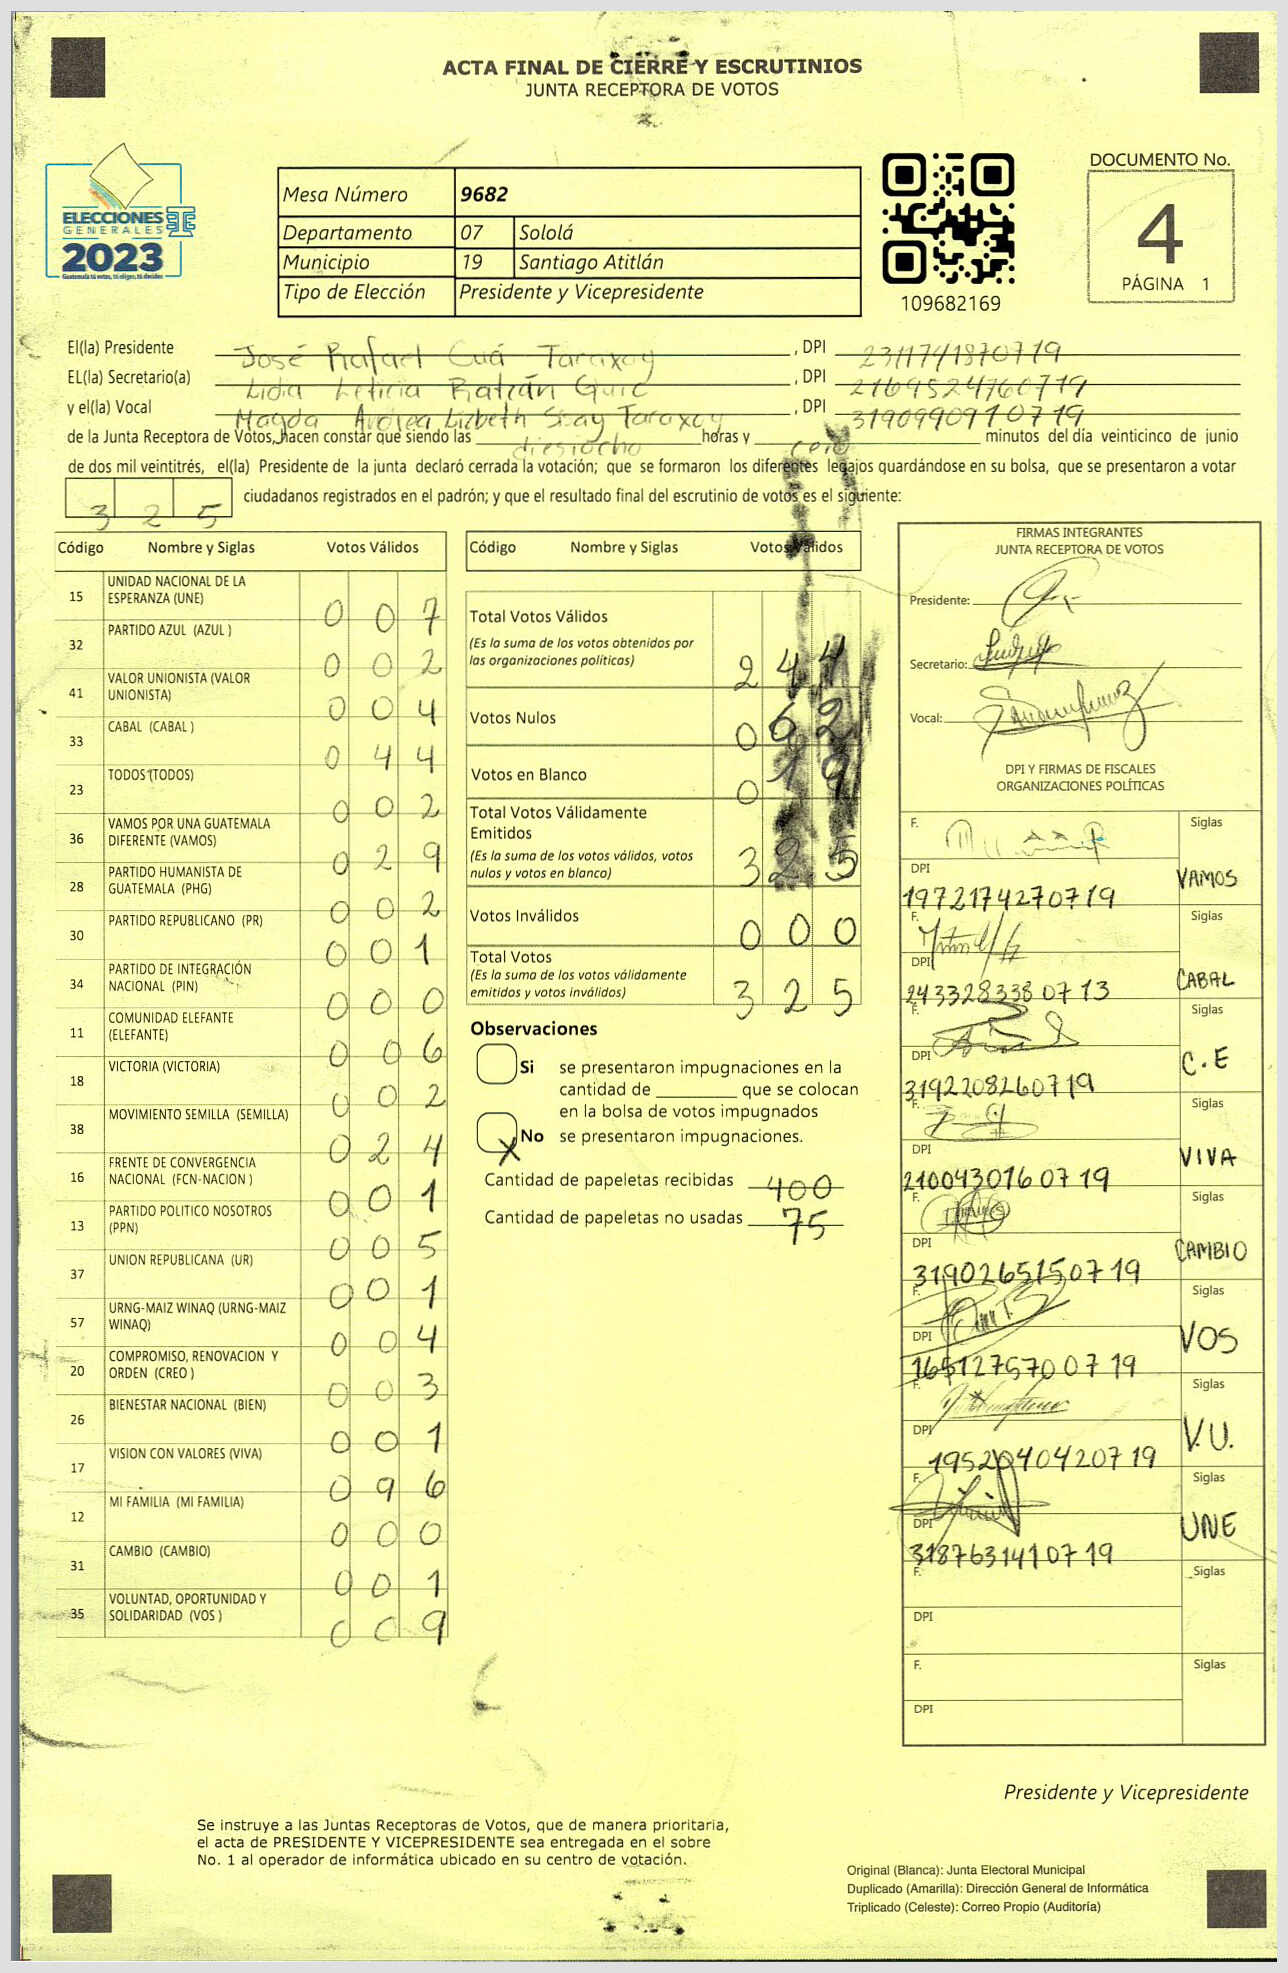 ACTA FINAL DE CIERRE Y ESCRUTINIOS
JUNTA RECEPTORA DE VOTOS
ELECCIONES
GENERALES
2023
Guatemala tú votas, tú eliges, tú decides
Mesa Número 9682
Departamento 07 Sololá
Municipio 19 Santiago Atitlán
Tipo de Elección Presidente y Vicepresidente
109682169
DOCUMENTO No.
4
PÁGINA 1
El(la) Presidente José Rafael Cuá Taraxoy , DPI 2311741870719
EL(la) Secretario(a) Lidia Leticia Ratzán Quic , DPI 2169524760719
y el(la) Vocal Magda Andrea Lizbeth Sicay Taraxoy , DPI 3190990910719
de la Junta Receptora de Votos, hacen constar que siendo las diesiocho horas y cero minutos del día veinticinco de junio
de dos mil veintitrés, el(la) Presidente de la junta declaró cerrada la votación; que se formaron los diferentes legajos quardándose en su bolsa, que se presentaron a votar
325 ciudadanos registrados en el padrón; y que el resultado final del escrutinio de votos es el siguiente:
Código Nombre y Siglas Votos Válidos
15 UNIDAD NACIONAL DE LA ESPERANZA (UNE) 007
32 PARTIDO AZUL (AZUL ) 002
41 VALOR UNIONISTA (VALOR UNIONISTA) 004
33 CABAL (CABAL ) 044
23 TODOS (TODOS) 002
36 VAMOS POR UNA GUATEMALA DIFERENTE (VAMOS) 029
28 PARTIDO HUMANISTA DE GUATEMALA (PHG) 002
30 PARTIDO REPUBLICANO (PR) 001
34 PARTIDO DE INTEGRACIÓN NACIONAL (PIN) 000
11 COMUNIDAD ELEFANTE (ELEFANTE) 006
18 VICTORIA (VICTORIA) 002
38 MOVIMIENTO SEMILLA (SEMILLA) 024
16 FRENTE DE CONVERGENCIA NACIONAL (FCN-NACION ) 001
13 PARTIDO POLITICO NOSOTROS (PPN) 005
37 UNION REPUBLICANA (UR) 001
57 URNG-MAIZ WINAQ (URNG-MAIZ WINAQ) 004
20 COMPROMISO, RENOVACION Y ORDEN (CREO ) 003
26 BIENESTAR NACIONAL (BIEN) 001
17 VISION CON VALORES (VIVA) 096
12 MI FAMILIA (MI FAMILIA) 000
31 CAMBIO (CAMBIO) 001
35 VOLUNTAD, OPORTUNIDAD Y SOLIDARIDAD (VOS ) 009
Código Nombre y Siglas Votos Válidos
Total Votos Válidos 244
(Es la suma de los votos obtenidos por
las organizaciones políticas)
Votos Nulos 062
Votos en Blanco 019
Total Votos Válidamente
Emitidos 325
(Es la suma de los votos válidos, votos
nulos y votos en blanco)
Votos Inválidos 000
Total Votos 325
(Es la suma de los votos válidamente
emitidos y votos inválidos)
Observaciones
Si se presentaron impugnaciones en la
cantidad de ________ que se colocan
en la bolsa de votos impugnados
X No se presentaron impugnaciones.
Cantidad de papeletas recibidas 400
Cantidad de papeletas no usadas 75
FIRMAS INTEGRANTES
JUNTA RECEPTORA DE VOTOS
Presidente:
Secretario:
Vocal:
DPI Y FIRMAS DE FISCALES
ORGANIZACIONES POLÍTICAS
F. Siglas
DPI 1972174270719 VAMOS
F. Siglas
DPI 2433283380713 CABAL
F. Siglas
DPI 3192208260719 C.E
F. Siglas
DPI 2100430160719 VIVA
F. Siglas
DPI 3190265150719 CAMBIO
F. Siglas
DPI 1651275700719 VOS
F. Siglas
DPI 1952040420719 V.U.
F. Siglas
DPI 3187631410719 UNE
F. Siglas
DPI
F. Siglas
DPI
Presidente y Vicepresidente
Se instruye a las Juntas Receptoras de Votos, que de manera prioritaria,
el acta de PRESIDENTE Y VICEPRESIDENTE sea entregada en el sobre
No. 1 al operador de informática ubicado en su centro de votación.
Original (Blanca): Junta Electoral Municipal
Duplicado (Amarilla): Dirección General de Informática
Triplicado (Celeste): Correo Propio (Auditoría)